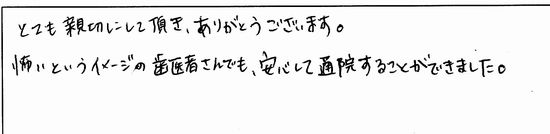 とても親切にして頂き、ありがとうございます。
怖いというイメージの歯医者さんでも、安心して通院することができました。